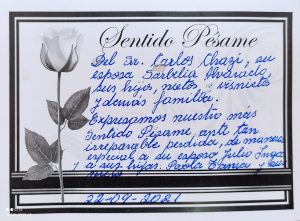 Sentido Pésame
Del Sr. Carlos Chazi, su
esposa Sarbelia Alvaracto,
sus hijos, nietos, visnietos
y demás familia.
Expresamos nuestro más
Sentido Pésame, anti tan
irreparable perdida, de manera
especial a su esposo Julio Inga
y a sus hijas. Paola Tania y sus
22-09-2021